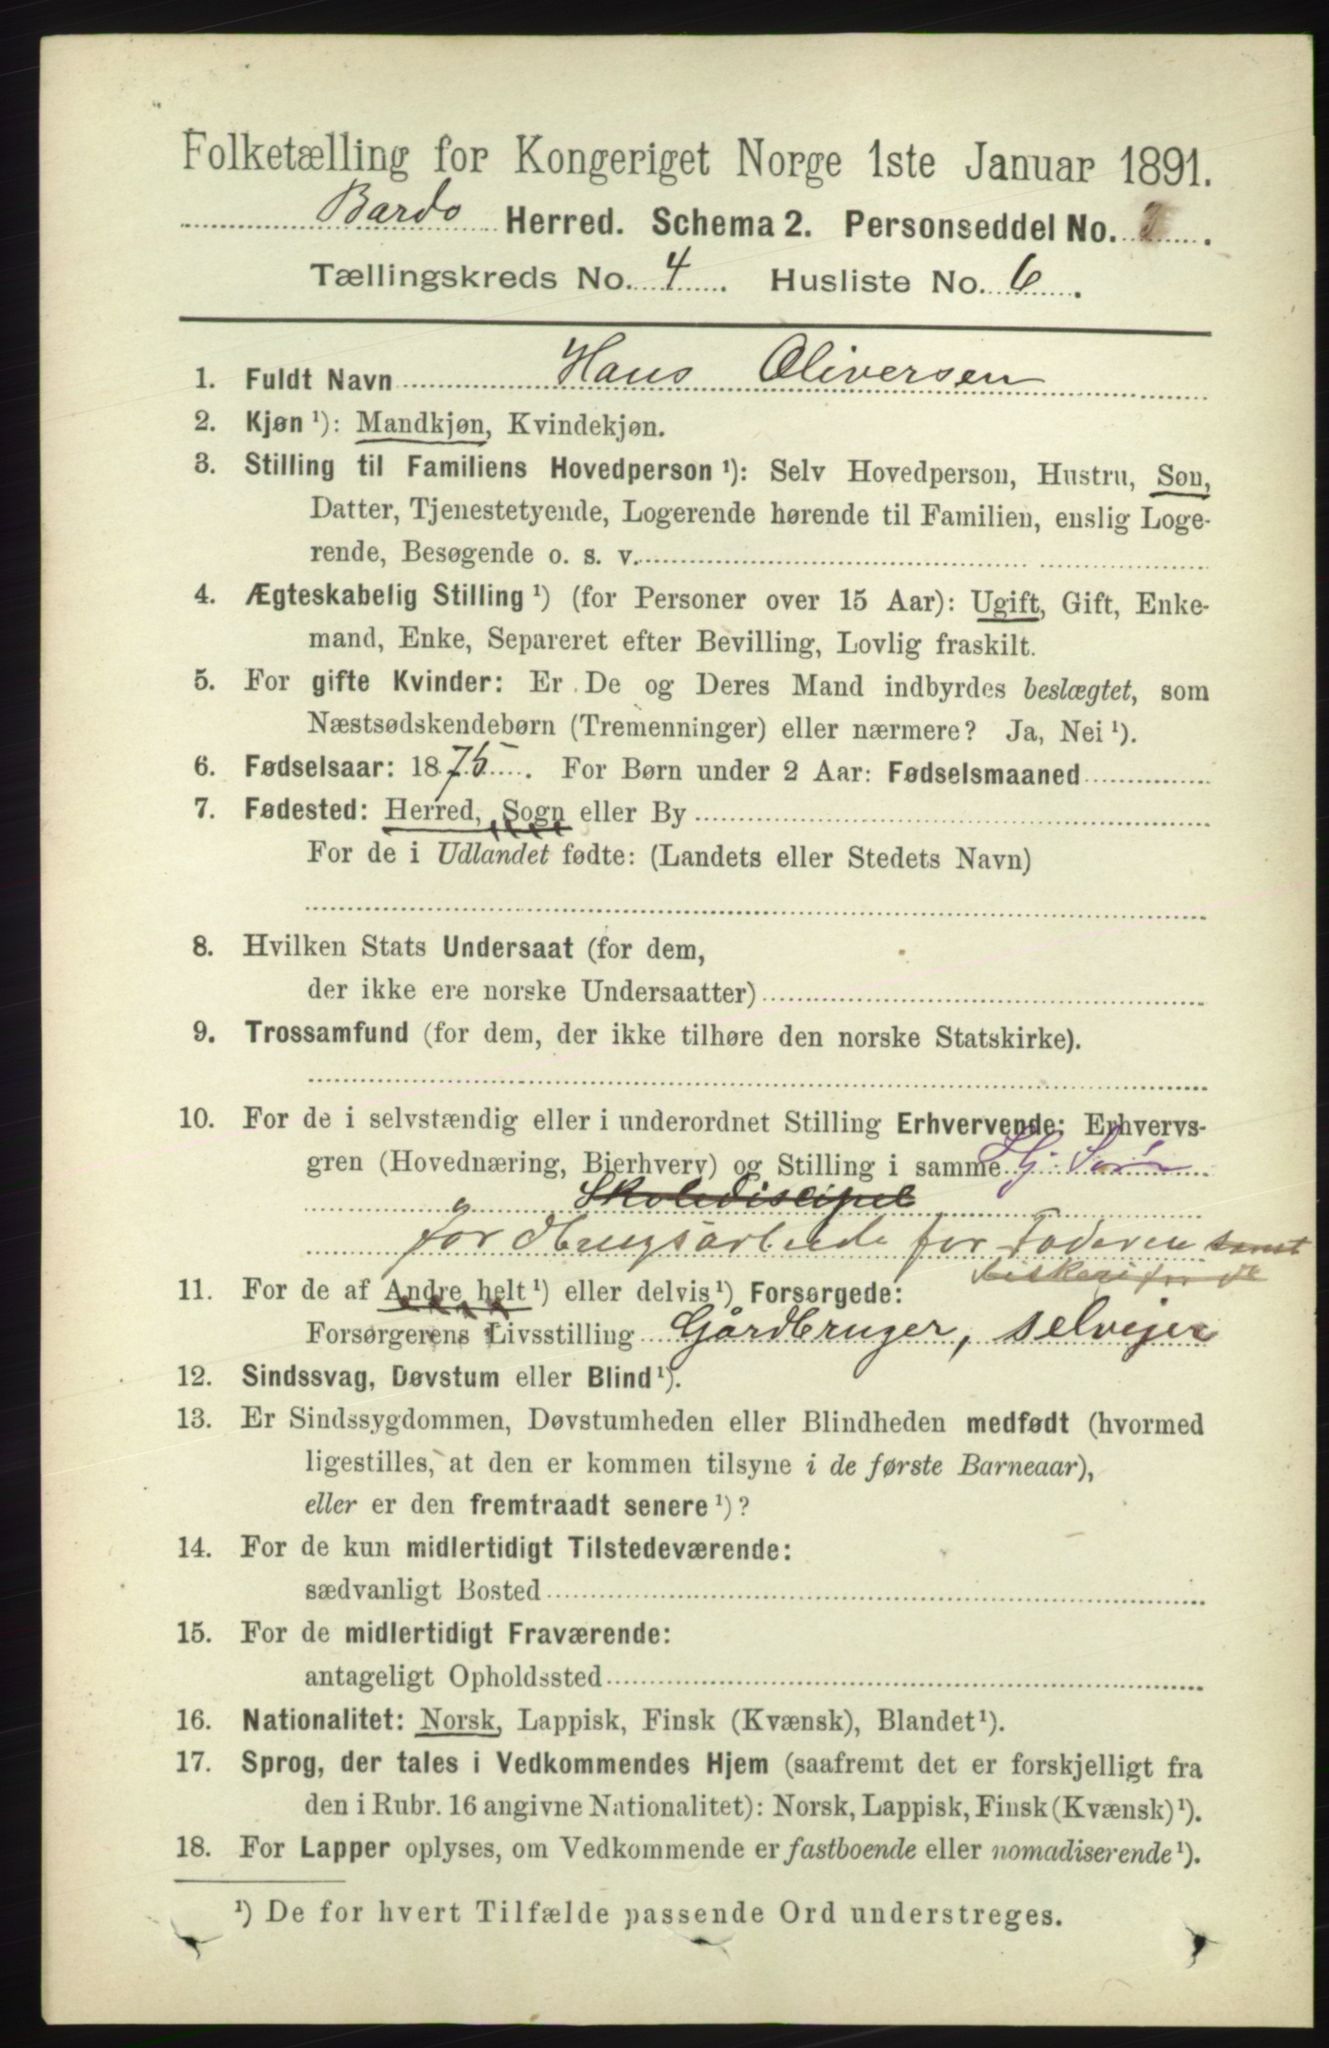 Folketælling for Kongeriget Norge 1ste Januar 1891.
Bardo Herred. Schema 2. Personseddel No.
Tællingskreds No. 4. Husliste No. 6.
1. Fuldt Navn Hans Oliversen
2. Kjøn ¹): Mandkjøn, Kvindekjøn.
3. Stilling til Familiens Hovedperson ¹): Selv Hovedperson, Hustru, Søn,
Datter, Tjenestetyende, Logerende hørende til Familien, enslig Loge-
rende, Besøgende o. s. v.
4. Ægteskabelig Stilling ¹) (for Personer over 15 Aar): Ugift, Gift, Enke-
mand, Enke, Separeret efter Bevilling, Lovlig fraskilt.
5. For gifte Kvinder: Er De og Deres Mand indbyrdes beslægtet, som
Næstsødskendebørn (Tremenninger) eller nærmere? Ja, Nei ¹).
6. Fødselsaar: 1875. For Børn under 2 Aar: Fødselsmaaned
7. Fødested: Herred, Sogn eller By
For de i Udlandet fødte: (Landets eller Stedets Navn)
8. Hvilken Stats Undersaat (for dem,
der ikke ere norske Undersaatter)
9. Trossamfund (for dem, der ikke tilhøre den norske Statskirke).
10. For de i selvstændig eller i underordnet Stilling Erhvervende: Erhvervs-
gren (Hovednæring, Bierhverv) og Stilling i samme G. Søn
Skolediscipel
Jordbrugsarbeide for Faderen samt
fiskeri for do
11. For de af Andre helt ¹) eller delvis ¹) Forsørgede:
Forsørgerens Livsstilling Gårdbruger, selveier
12. Sindssvag, Døvstum eller Blind ¹).
13. Er Sindssygdommen, Døvstumheden eller Blindheden medfødt (hvormed
ligestilles, at den er kommen tilsyne i de første Barneaar),
eller er den fremtraadt senere ¹)?
14. For de kun midlertidigt Tilstedeværende:
sædvanligt Bosted
15. For de midlertidigt Fraværende:
antageligt Opholdssted
16. Nationalitet: Norsk, Lappisk, Finsk (Kvænsk), Blandet ¹).
17. Sprog, der tales i Vedkommendes Hjem (saafremt det er forskjelligt fra
den i Rubr. 16 angivne Nationalitet): Norsk, Lappisk, Finsk (Kvænsk) ¹).
18. For Lapper oplyses, om Vedkommende er fastboende eller nomadiserende ¹).
¹) De for hvert Tilfælde passende Ord understreges.